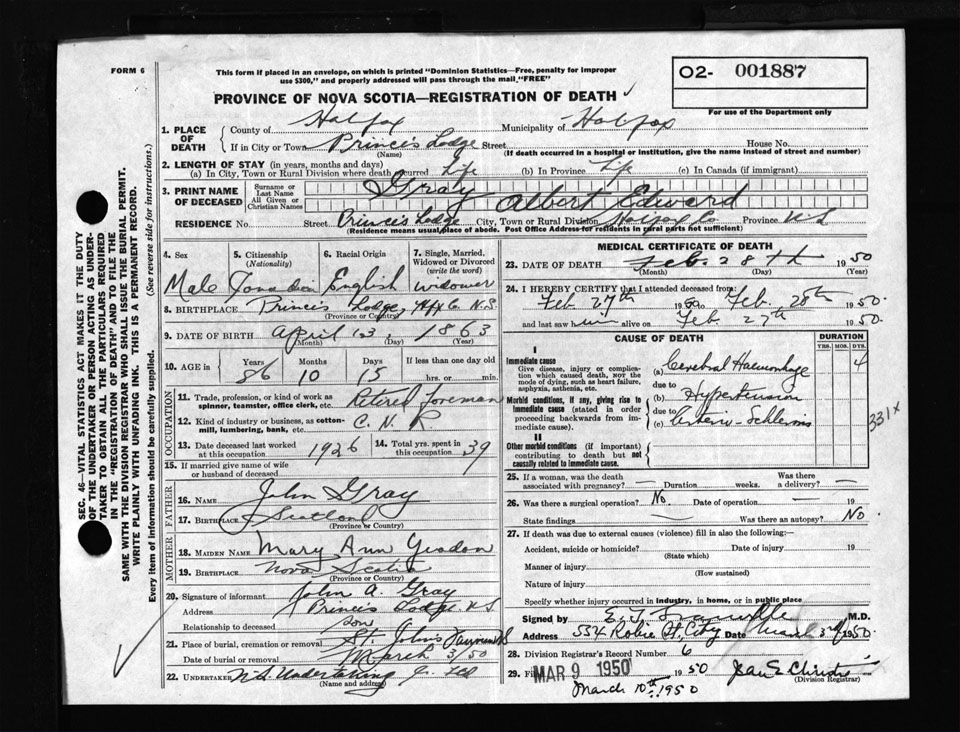 FORM 6
This form if placed in an envelope, on which is printed "Dominion Statistics—Free, penalty for improper
use $300," and properly addressed will pass through the mail "FREE"
O2- 001887
For use of the Department only
PROVINCE OF NOVA SCOTIA—REGISTRATION OF DEATH
1. PLACE OF DEATH
County of Halifax Municipality of Halifax
If in City or Town Princis Lodge Street House No.
(Name) (If death occurred in a hospital or institution, give the name instead of street and number)
2. LENGTH OF STAY (in years, months and days)
(a) In City, Town or Rural Division where death occurred Life (b) In Province Life (c) In Canada (if immigrant)
3. PRINT NAME OF DECEASED
Surname or Last Name Gray
All Given or Christian Names Albert Edward
RESIDENCE No. Street Princis Lodge City, Town or Rural Division Halifax Co Province N.S
(Residence means usual place of abode. Post Office Address for residents in rural parts not sufficient)
4. Sex 5. Citizenship (Nationality) 6. Racial Origin 7. Single, Married, Widowed or Divorced (write the word)
Male Canadian English widower
8. BIRTHPLACE Princis Lodge, Hfx Co. N.S.
(Province or Country)
9. DATE OF BIRTH April 13 1863
(Month) (Day) (Year)
10. AGE in Years Months Days If less than one day old
86 10 15 hrs. or min.
OCCUPATION
11. Trade, profession, or kind of work as
spinner, teamster, office clerk, etc. Retired Foreman
12. Kind of industry or business, as cotton-
mill, lumbering, bank, etc. C. N. R
13. Date deceased last worked
at this occupation 1926
14. Total yrs. spent in
this occupation 39
15. If married give name of wife
or husband of deceased
FATHER
16. NAME John Gray
17. BIRTHPLACE Scotland
(Province or Country)
MOTHER
18. MAIDEN NAME Mary Ann Yeadon
19. BIRTHPLACE Nova Scotia
(Province or Country)
20. Signature of informant John A. Gray
Address Princis Lodge N.S
Relationship to deceased son
21. Place of burial, cremation or removal St. John's N.S
Date of burial or removal March 3/50
22. UNDERTAKER N.S. Undertaking Co. Ltd
(Name and address)
MEDICAL CERTIFICATE OF DEATH
23. DATE OF DEATH Feb. 28th 1950
(Month) (Day) (Year)
24. I HEREBY CERTIFY that I attended deceased from:
Feb 27th 1950 Feb. 28th 1950.
and last saw him alive on Feb. 27th 1950.
CAUSE OF DEATH
DURATION
YRS. MOS. DYS.
I
Immediate cause
Give disease, injury or complication which caused death, not the mode of dying, such as heart failure, asphyxia, asthenia, etc.
(a) Cerebral Haemorrhage 4
due to
Morbid conditions, if any, giving rise to immediate cause (stated in order proceeding backwards from immediate cause).
(b) Hypertension
due to
(c) Arterio-Schlerosis
331x
II
Other morbid conditions (if important) contributing to death but not causally related to immediate cause.
25. If a woman, was the death associated with pregnancy? — Duration weeks. Was there a delivery? —
26. Was there a surgical operation? No Date of operation — 19
State findings — Was there an autopsy? No
27. If death was due to external causes (violence) fill in also the following:
Accident, suicide or homicide? Date of injury 19
(State which)
Manner of injury
(How sustained)
Nature of injury
Specify whether injury occurred in industry, in home, or in public place
Signed by M.D.
Address 554 Robie St, City Date March 3rd 1950
28. Division Registrar's Record Number 6
29. MAR 9 1950 1950 Jean E Christie
(Division Registrar)
March 10th 1950
SEC. 46—VITAL STATISTICS ACT MAKES IT THE DUTY
OF THE UNDERTAKER OR PERSON ACTING AS UNDER-
TAKER TO OBTAIN ALL THE PARTICULARS REQUIRED
IN THE "REGISTRATION OF DEATH" AND TO FILE THE
SAME WITH THE DIVISION REGISTRAR WHO SHALL ISSUE THE BURIAL PERMIT.
WRITE PLAINLY WITH UNFADING INK. THIS IS A PERMANENT RECORD.
Every item of information should be carefully supplied. (See reverse side for instructions.)
FORM 6